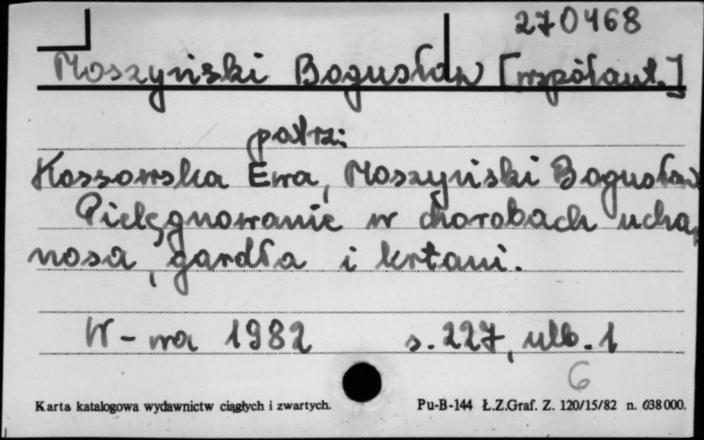 270468
Moszyński Bogusław [współaut.]
patrz:
Kossowska Ewa, Moszyński Bogusław
Pielęgnowanie w chorobach ucha,
nosa, gardła i krtani.
W-wa 1982 s. 227, ulb. 1
6
Karta katalogowa wydawnictw ciągłych i zwartych. Pu-B-144 Ł.Z.Graf. Z. 120/15/82 n. 638000.